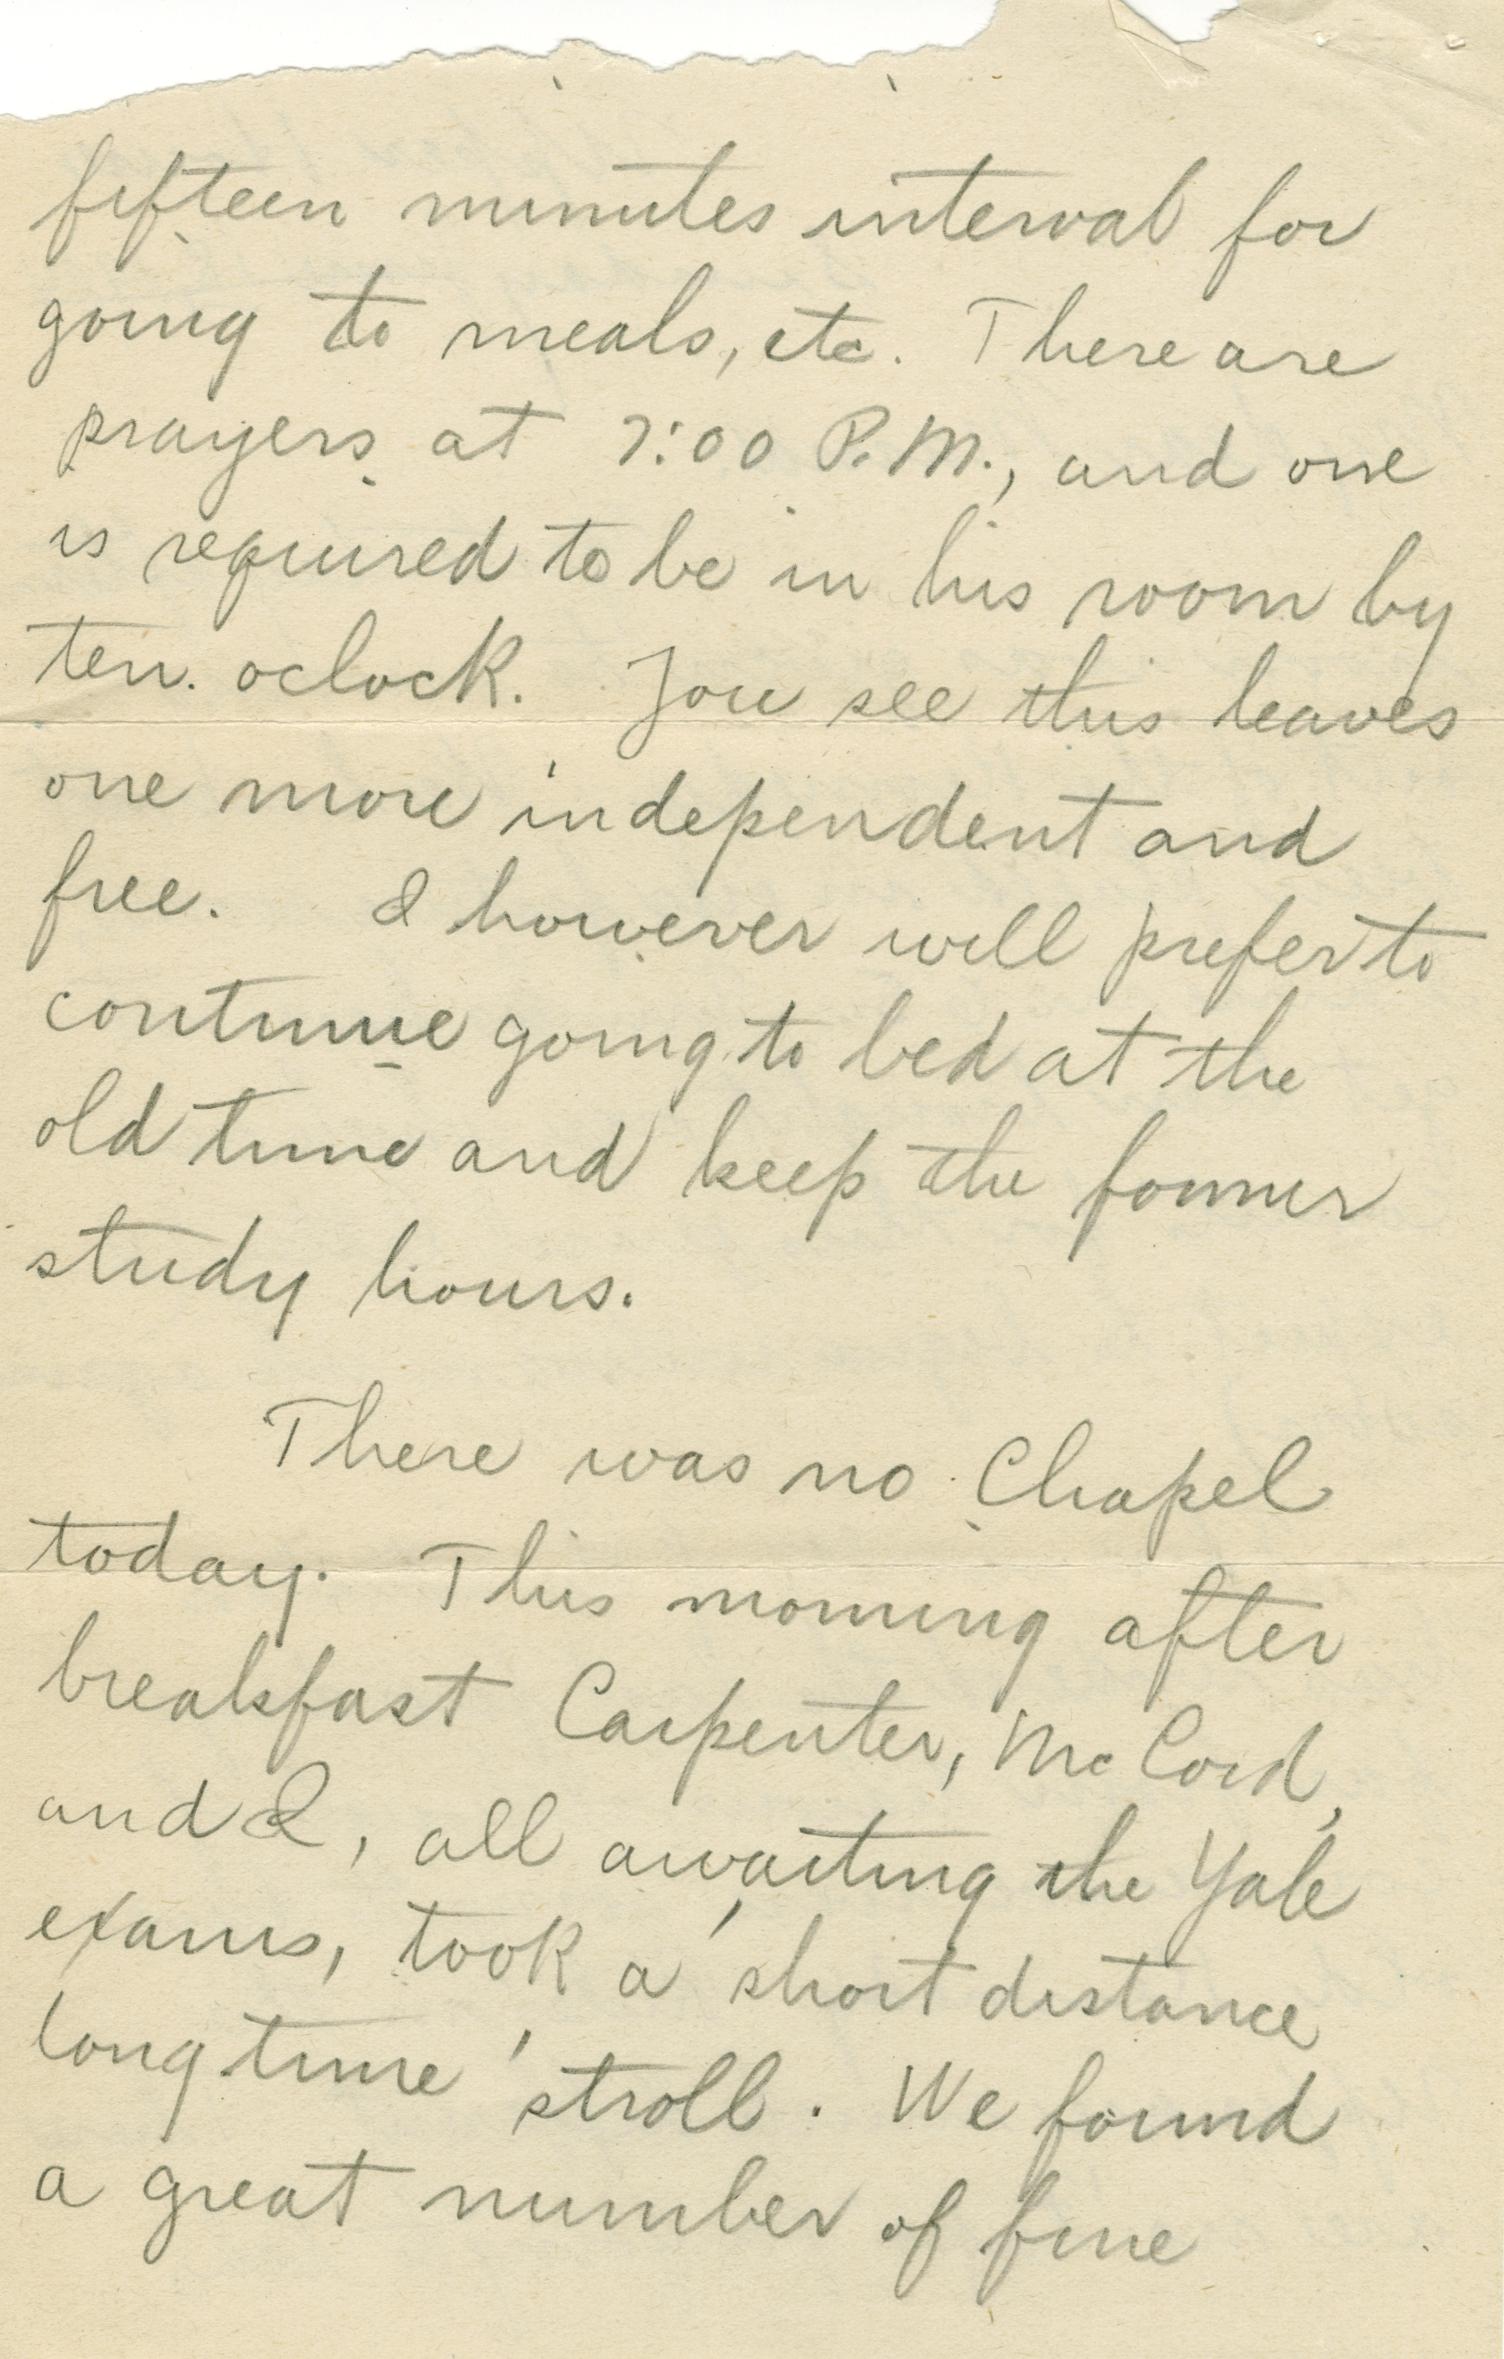 fifteen minutes interval for
going to meals, etc. There are
prayers at 7:00 P.M., and one
is required to be in his room by
ten oclock. You see this leaves
one more independent and
free. I however will prefer to
continue going to bed at the
old time and keep the former
study hours.
There was no Chapel
today. This morning after
breakfast Carpenter, McCord,
and I, all awaiting the Yale
exams, took a short distance
long time stroll. We found
a great number of fine